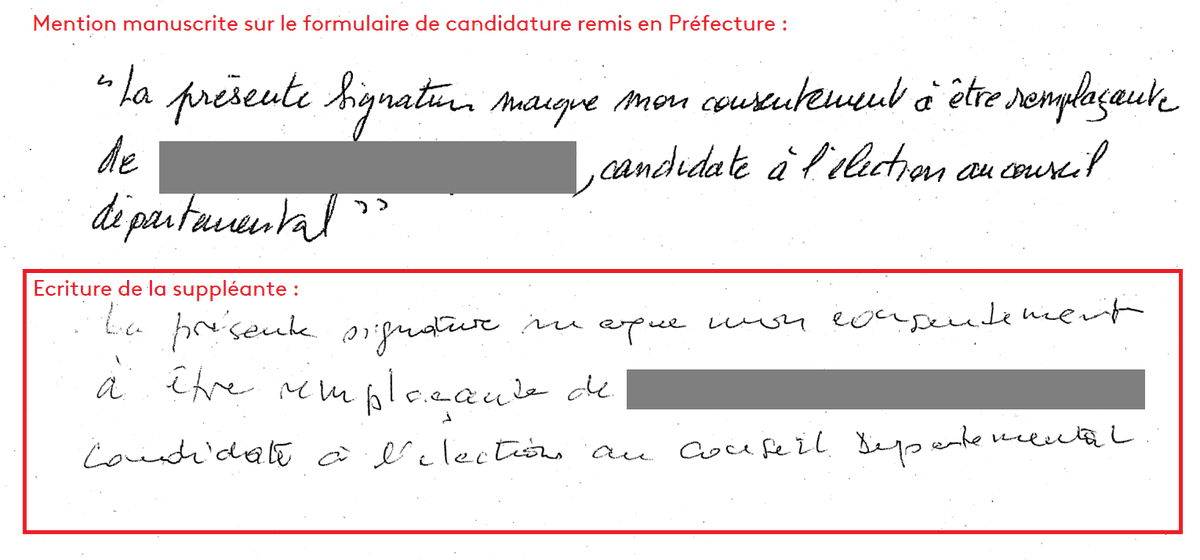 Mention manuscrite sur le formulaire de candidature remis en Préfecture :
"La présente signature marque mon consentement à être remplaçante
de , candidate à l'élection au conseil
départemental"
Ecriture de la suppléante :
La présente signature marque mon consentement
à être remplaçante de
candidate à l'élection au conseil Départemental